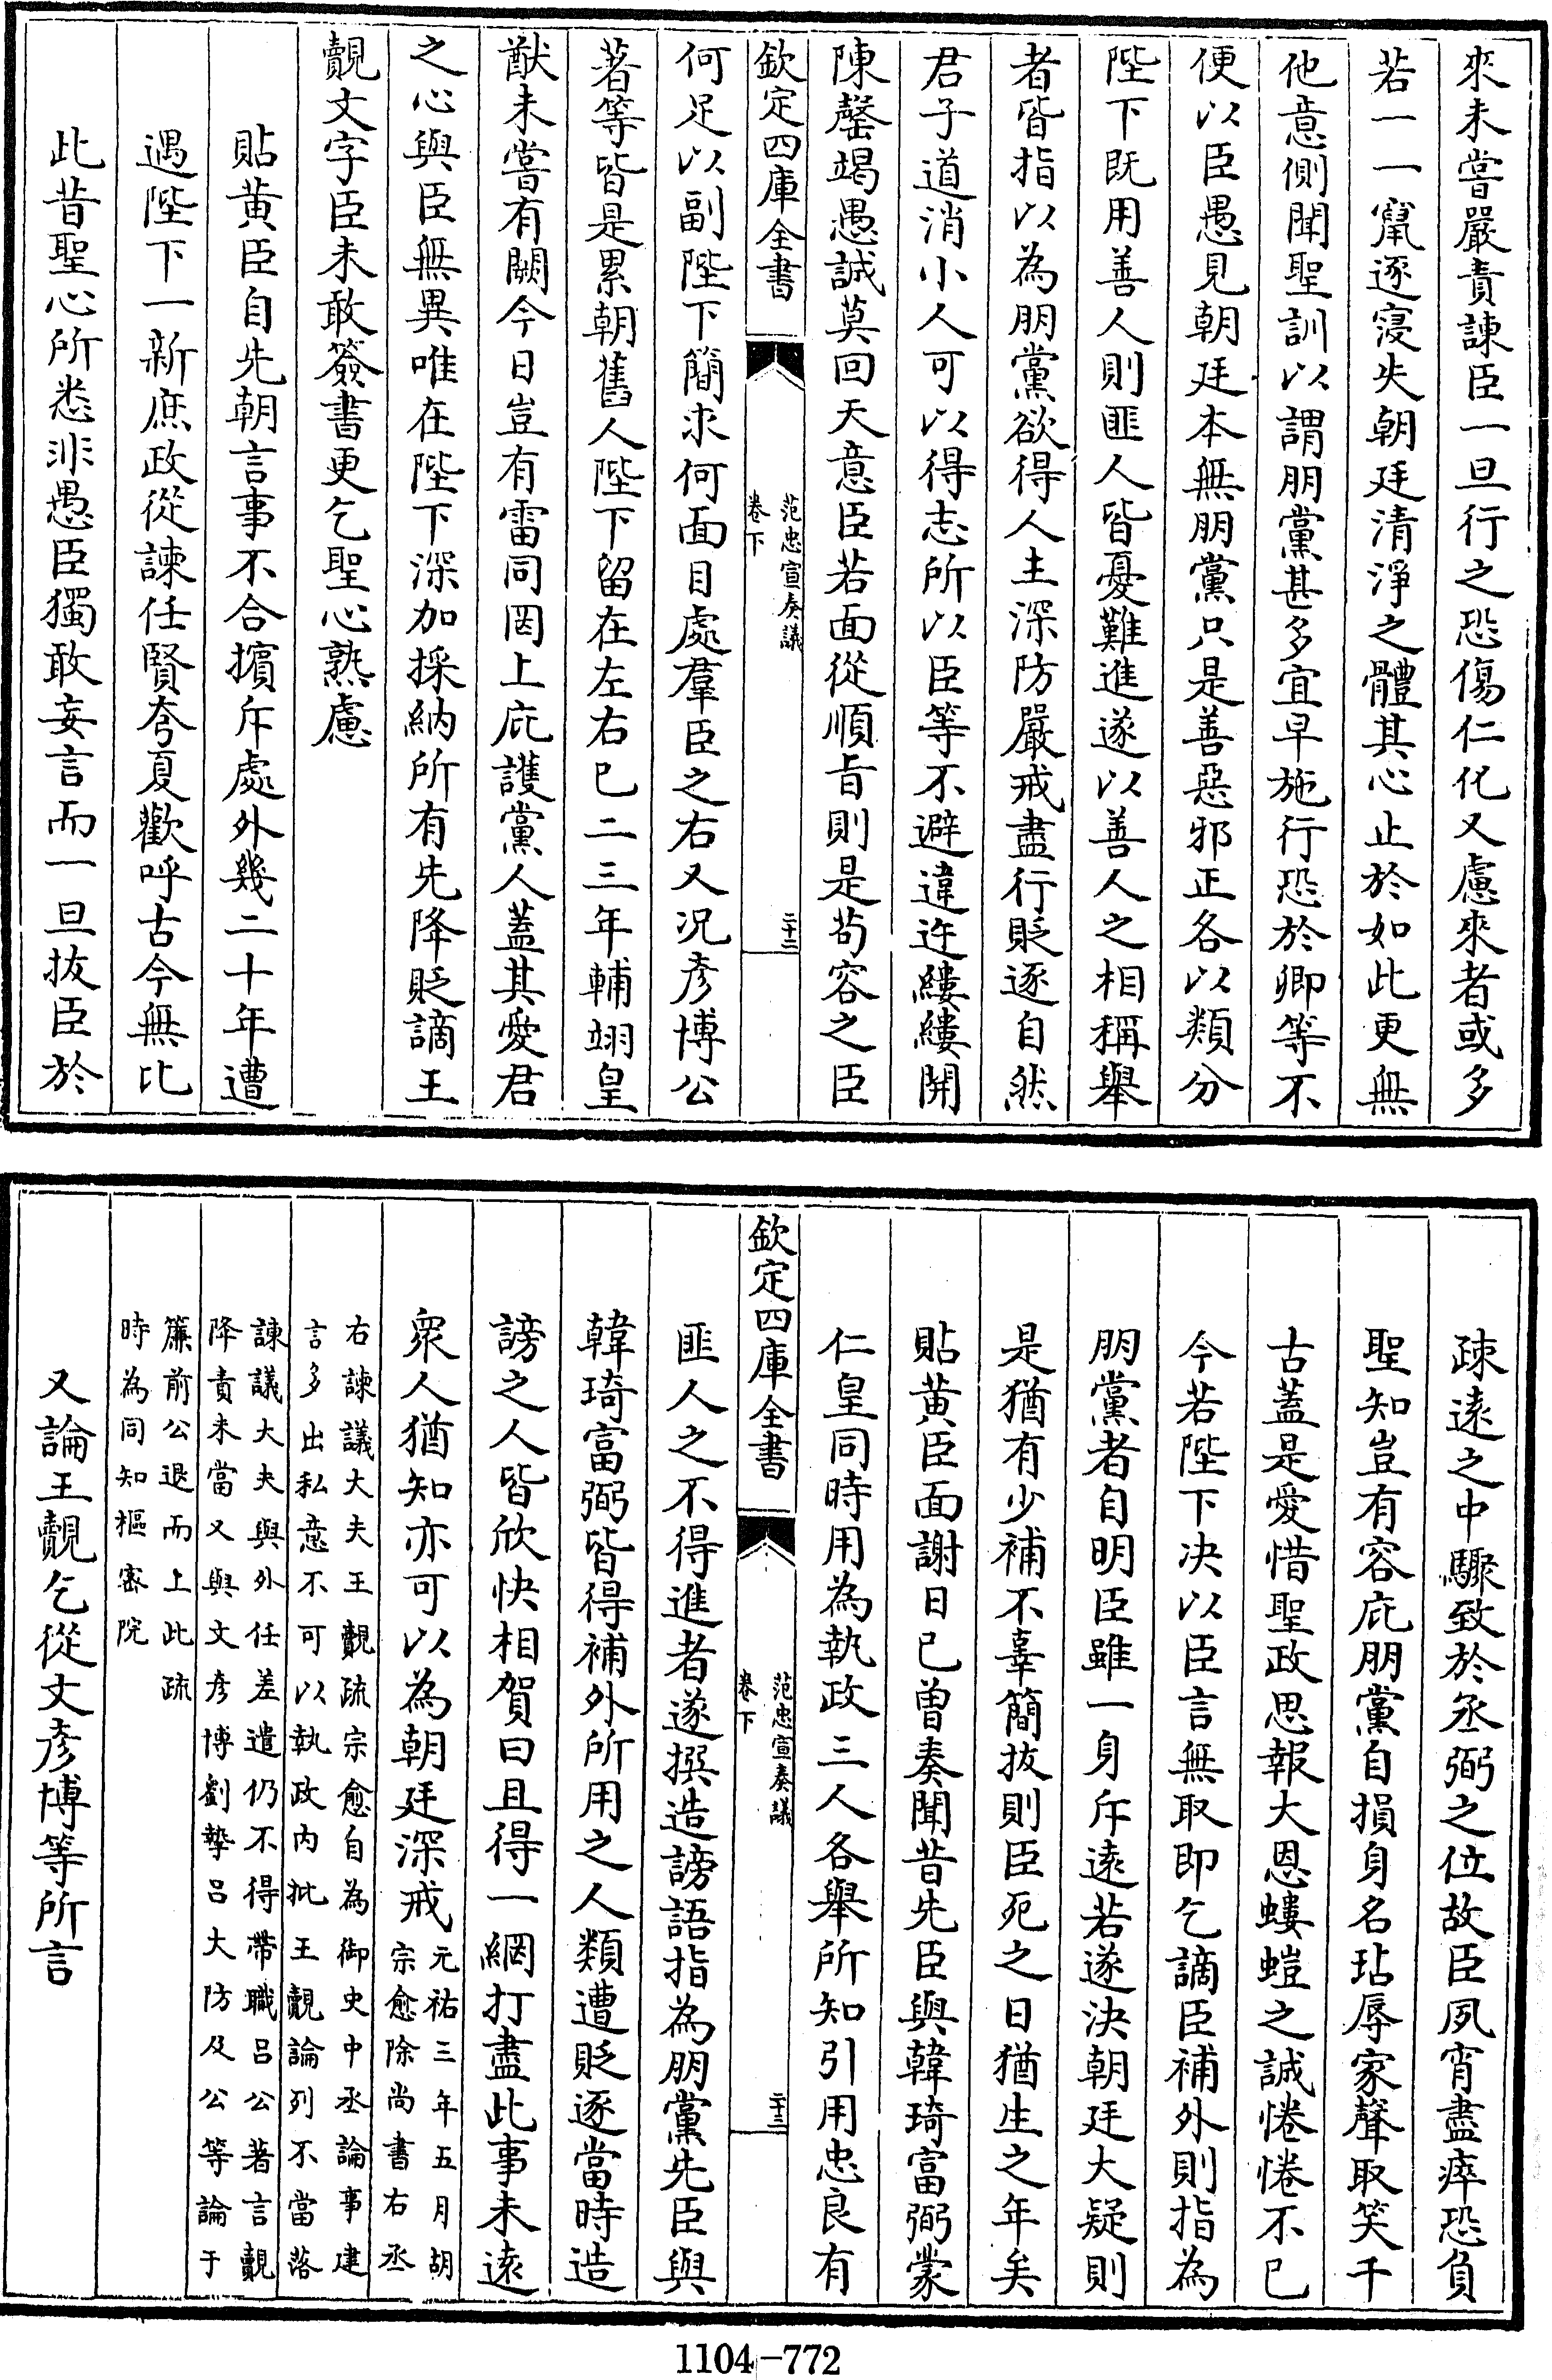 來未嘗嚴責諫臣一旦行之恐傷仁化又慮來者或多
若一一竄逐寖失朝廷清淨之體其心止於如此更無
他意側聞聖訓以謂朋黨甚多宜早施行恐於卿等不
便以臣愚見朝廷本無朋黨只是善惡邪正各以類分
陛下既用善人則匪人皆憂難進遂以善人之相稱舉
者皆指以為朋黨欲得人主深防嚴戒盡行貶逐自然
君子道消小人可以得志所以臣等不避違迕縷縷開
陳罄竭愚誠莫回天意臣若面從順旨則是茍容之臣
欽定四庫全書
范忠宣奏議
卷下
二十二
何足以副陛下簡求何面目處羣臣之右又况彦博公
著等皆是累朝舊人陛下留在左右已二三年輔翊皇
猷未嘗有闕今日豈有雷同罔上庇護黨人蓋其愛君
之心與臣無異唯在陛下深加採納所有先降貶謫王
覿文字臣未敢簽書更乞聖心熟慮
貼黄臣自先朝言事不合擯斥處外幾二十年遭
遇陛下一新庶政從諫任賢夸夏歡呼古今無比
此昔聖心所悉非愚臣獨敢妄言而一旦拔臣於
疎逺之中驟致於丞弼之位故臣夙宵盡瘁恐負
聖知豈有容庇朋黨自損身名玷辱家聲取笑千
古蓋是愛惜聖政思報大恩螻螘之誠惓惓不已
今若陛下決以臣言無取即乞謫臣補外則指為
朋黨者自明臣雖一身斥逺若遂決朝廷大疑則
是猶有少補不辜簡拔則臣死之日猶生之年矣
貼黄臣面謝日已曾奏聞昔先臣與韓琦富弼蒙
仁皇同時用為執政三人各舉所知引用忠良有
欽定四庫全書
范忠宣奏議
卷下
二十三
匪人之不得進者遂撰造謗語指為朋黨先臣與
韓琦富弼皆得補外所用之人類遭貶逐當時造
謗之人皆欣快相賀曰且得一網打盡此事未逺
衆人猶知亦可以為朝廷深戒元祐三年五月胡
宗愈除尚書右丞
右諫議大夫王覿疏宗愈自為御史中丞論事建
言多出私意不可以執政内批王覿論列不當落
諫議大夫與外任差遣仍不得帶職吕公著言覿
降責未當又與文彦博劉摯吕大防及公等論于
簾前公退而上此疏
時為同知樞宻院
又論王覿乞從文彦博等所言
1104-772